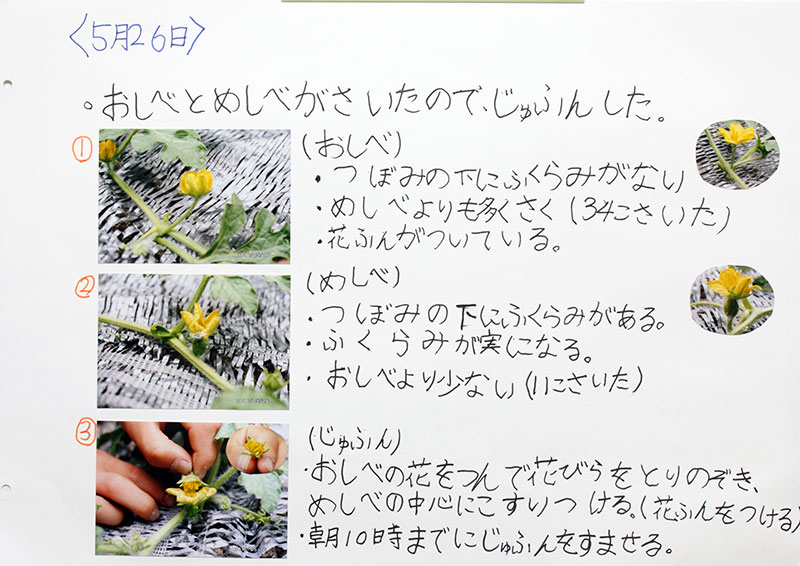 〈5月26日〉
。おしべとめしべがさいたので、じゅふんした。
① (おしべ)
・つぼみの下にふくらみがない
・めしべよりも多くさく(34こさいた)
・花ふんがついている。
② (めしべ)
・つぼみの下にふくらみがある。
・ふくらみが実になる。
・おしべより少ない(11こさいた)
③ (じゅふん)
・おしべの花をつんで花びらをとりのぞき、
めしべの中心にこすりつける。(花ふんをつける)
・朝10時までにじゅふんをすませる。